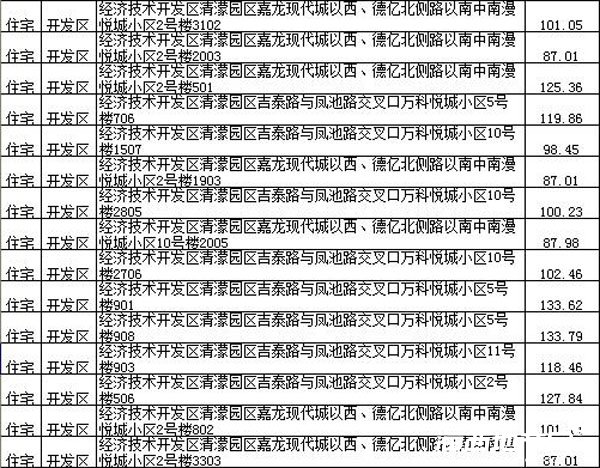 经济技术开发区清濛园区嘉龙现代城以西、德亿北侧路以南中南漫
住宅 开发区 悦城小区2号楼3102 101.05
经济技术开发区清濛园区嘉龙现代城以西、德亿北侧路以南中南漫
住宅 开发区 悦城小区2号楼2003 87.01
经济技术开发区清濛园区嘉龙现代城以西、德亿北侧路以南中南漫
住宅 开发区 悦城小区2号楼501 125.36
经济技术开发区清濛园区吉泰路与凤池路交叉口万科悦城小区5号
住宅 开发区 楼706 119.86
经济技术开发区清濛园区吉泰路与凤池路交叉口万科悦城小区10号
住宅 开发区 楼1507 98.45
经济技术开发区清濛园区嘉龙现代城以西、德亿北侧路以南中南漫
住宅 开发区 悦城小区2号楼1903 87.01
经济技术开发区清濛园区吉泰路与凤池路交叉口万科悦城小区10号
住宅 开发区 楼2805 100.23
经济技术开发区清濛园区嘉龙现代城以西、德亿北侧路以南中南漫
住宅 开发区 悦城小区10号楼2005 87.98
经济技术开发区清濛园区吉泰路与凤池路交叉口万科悦城小区10号
住宅 开发区 楼2706 102.46
经济技术开发区清濛园区吉泰路与凤池路交叉口万科悦城小区5号
住宅 开发区 楼901 133.62
经济技术开发区清濛园区吉泰路与凤池路交叉口万科悦城小区5号
住宅 开发区 楼908 133.79
经济技术开发区清濛园区吉泰路与凤池路交叉口万科悦城小区11号
住宅 开发区 楼903 118.46
经济技术开发区清濛园区吉泰路与凤池路交叉口万科悦城小区2号
住宅 开发区 楼506 127.84
经济技术开发区清濛园区嘉龙现代城以西、德亿北侧路以南中南漫
住宅 开发区 悦城小区2号楼802
经济技术开发区清濛园区嘉龙现代城以西、德亿北侧路以南中南漫
住宅 开发区 悦城小区2号楼3303 87.01